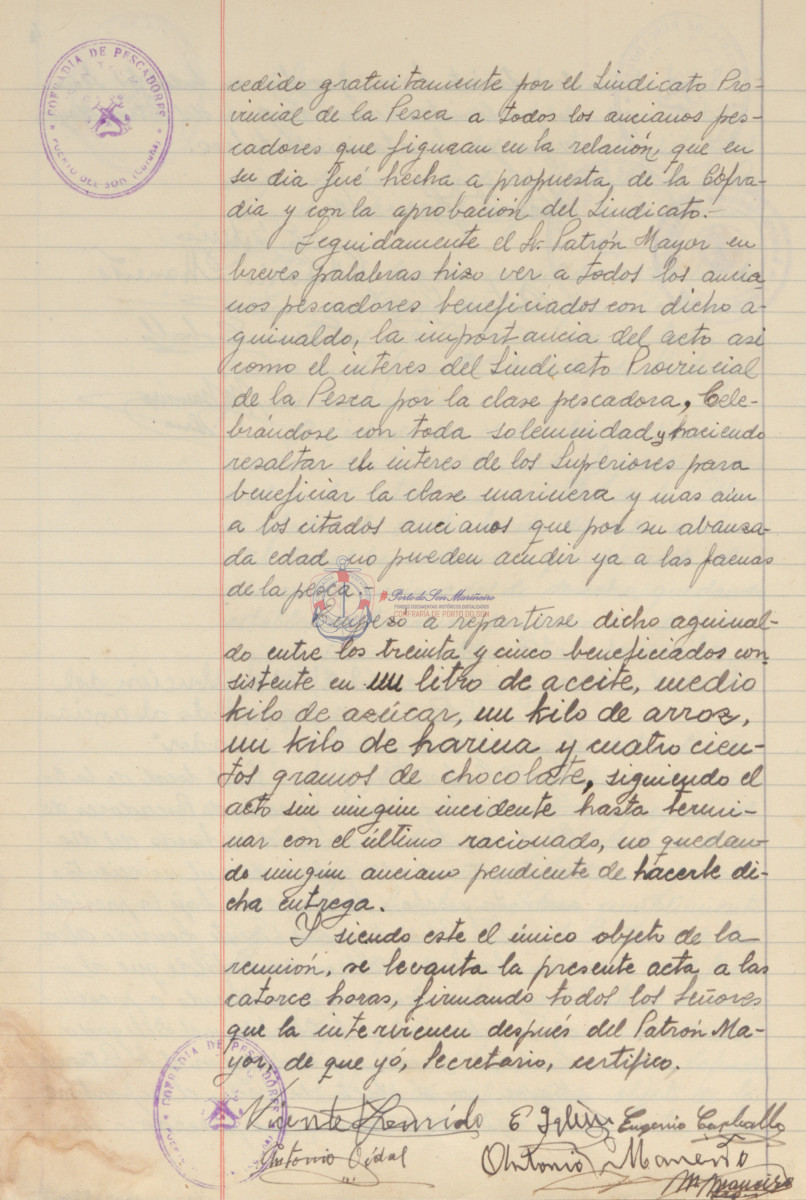 COFRADIA DE PESCADORES
PUERTO DEL SON (Coruña)
cedido gratuitamente por el Sindicato Pro-
vincial de la Pesca a todos los ancianos pes-
cadores que figuran en la relación, que en
su dia fué hecha a propuesta, de la Cofra-
dia y con la aprobación del Sindicato.-
Seguidamente el Sr. Patrón Mayor en
breves palabras hizo ver a todos los ancia-
nos pescadores beneficiados con dicho a-
guinaldo, la importancia del acto asi
como el interes del Sindicato Provincial
de la Pesca por la clase pescadora, Cele-
brándose con toda solemnidad y haciendo
resaltar el interes de los Superiores para
beneficiar la clase marinera y mas aún
a los citados ancianos que por su abanza-
da edad no pueden acudir ya a las faenas
de la pesca.-
#Porto do Son Mariñeiro
FONDOS DOCUMENTAIS HISTÓRICOS DIXITALIZADOS
CONFRARÍA DE PORTO DO SON
Empezó a repartirse dicho aguinal-
do entre los treinta y cinco beneficiados con-
sistente en un litro de aceite, medio
kilo de azúcar, un kilo de arroz,
un kilo de harina y cuatro cien-
tos gramos de chocolate, siguiendo el
acto sin ningún incidente hasta termi-
nar con el último racionado, no quedan-
do ningún anciano pendiente de hacerle di-
cha entrega.
Y siendo este el único objeto de la
reunión, se levanta la presente acta a las
catorce horas, firmando todos los Señores
que la intervienen después del Patrón Ma-
yor, de que yó, Secretario, certifico.
COFRADIA DE PESCADORES
Vicente E Eugenio Carballo
Antonio Vidal Antonio